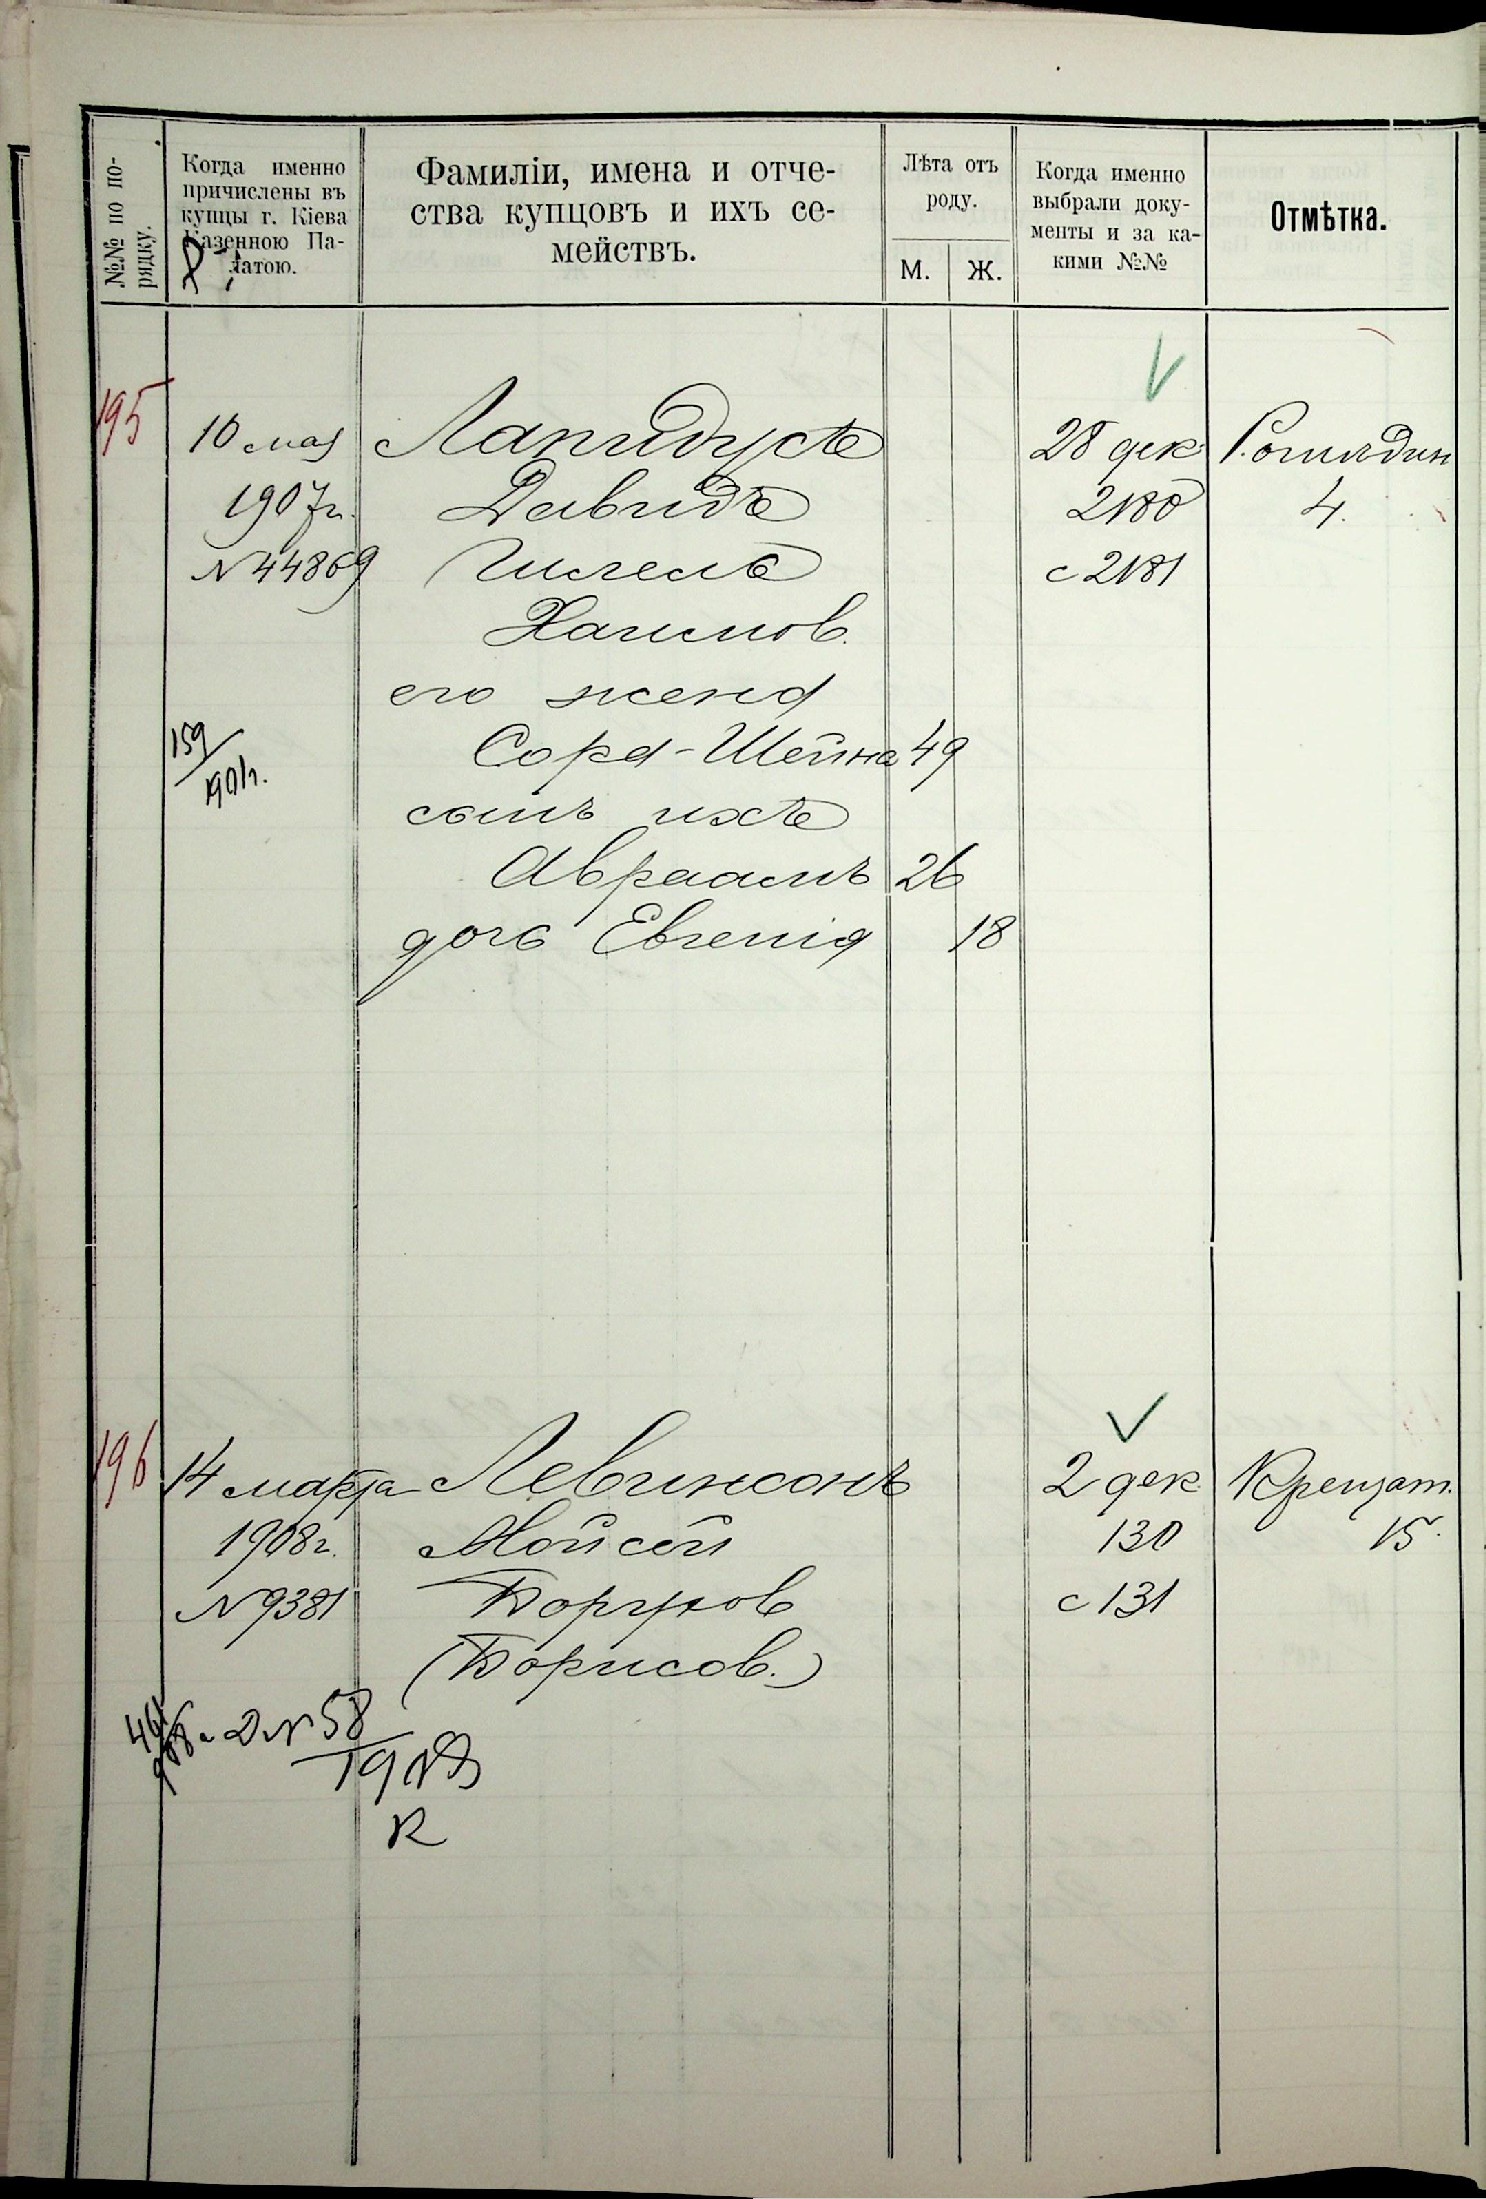 №№ по по-
рядку.
Когда именно
причислены въ
купцы г. Кіева
Казенною Па-
латою.
Фамиліи, имена и отче-
ства купцовъ и ихъ се-
мействъ.
Лѣта отъ
роду.
М. Ж.
Когда именно
выбрали доку-
менты и за ка-
кими №№
Отмѣтка.
195
10 мая
1907г.
N 44869
159
Лапидусъ
Давидъ
Гилель
Хаимов.
его жена
Сора-Шейна 49
сынъ ихъ
Авраамъ 26
дочь Евгенія 18
28 дек
2180
с 2181
4.
196
14 марта
1908г.
N 9381
Левинсонъ
Мойсей
Борухов
(Борисов.)
2 дек
130
с 131
Крещат.
15.
N 58